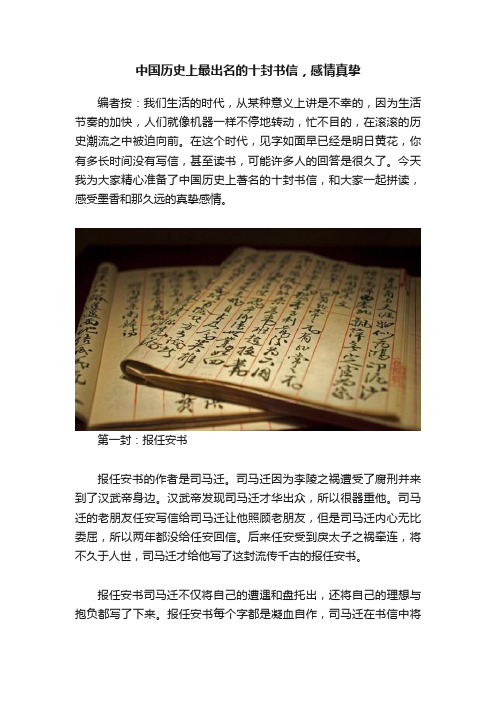 中国历史上最出名的十封书信，感情真挚
编者按：我们生活的时代，从某种意义上讲是不幸的，因为生活
节奏的加快，人们就像机器一样不停地转动，忙不目的，在滚滚的历
史潮流之中被迫向前。在这个时代，见字如面早已经是明日黄花，你
有多长时间没有写信，甚至读书，可能许多人的回答是很久了。今天
我为大家精心准备了中国历史上著名的十封书信，和大家一起拼读，
感受墨香和那久远的真挚感情。
第一封：报任安书
报任安书的作者是司马迁。司马迁因为李陵之祸遭受了腐刑并来
到了汉武帝身边。汉武帝发现司马迁才华出众，所以很器重他。司马
迁的老朋友任安写信给司马迁让他照顾老朋友，但是司马迁内心无比
委屈，所以两年都没给任安回信。后来任安受到戾太子之祸牵连，将
不久于人世，司马迁才给他写了这封流传千古的报任安书。
报任安书司马迁不仅将自己的遭遇和盘托出，还将自己的理想与
抱负都写了下来。报任安书每个字都是凝血自作，司马迁在书信中将